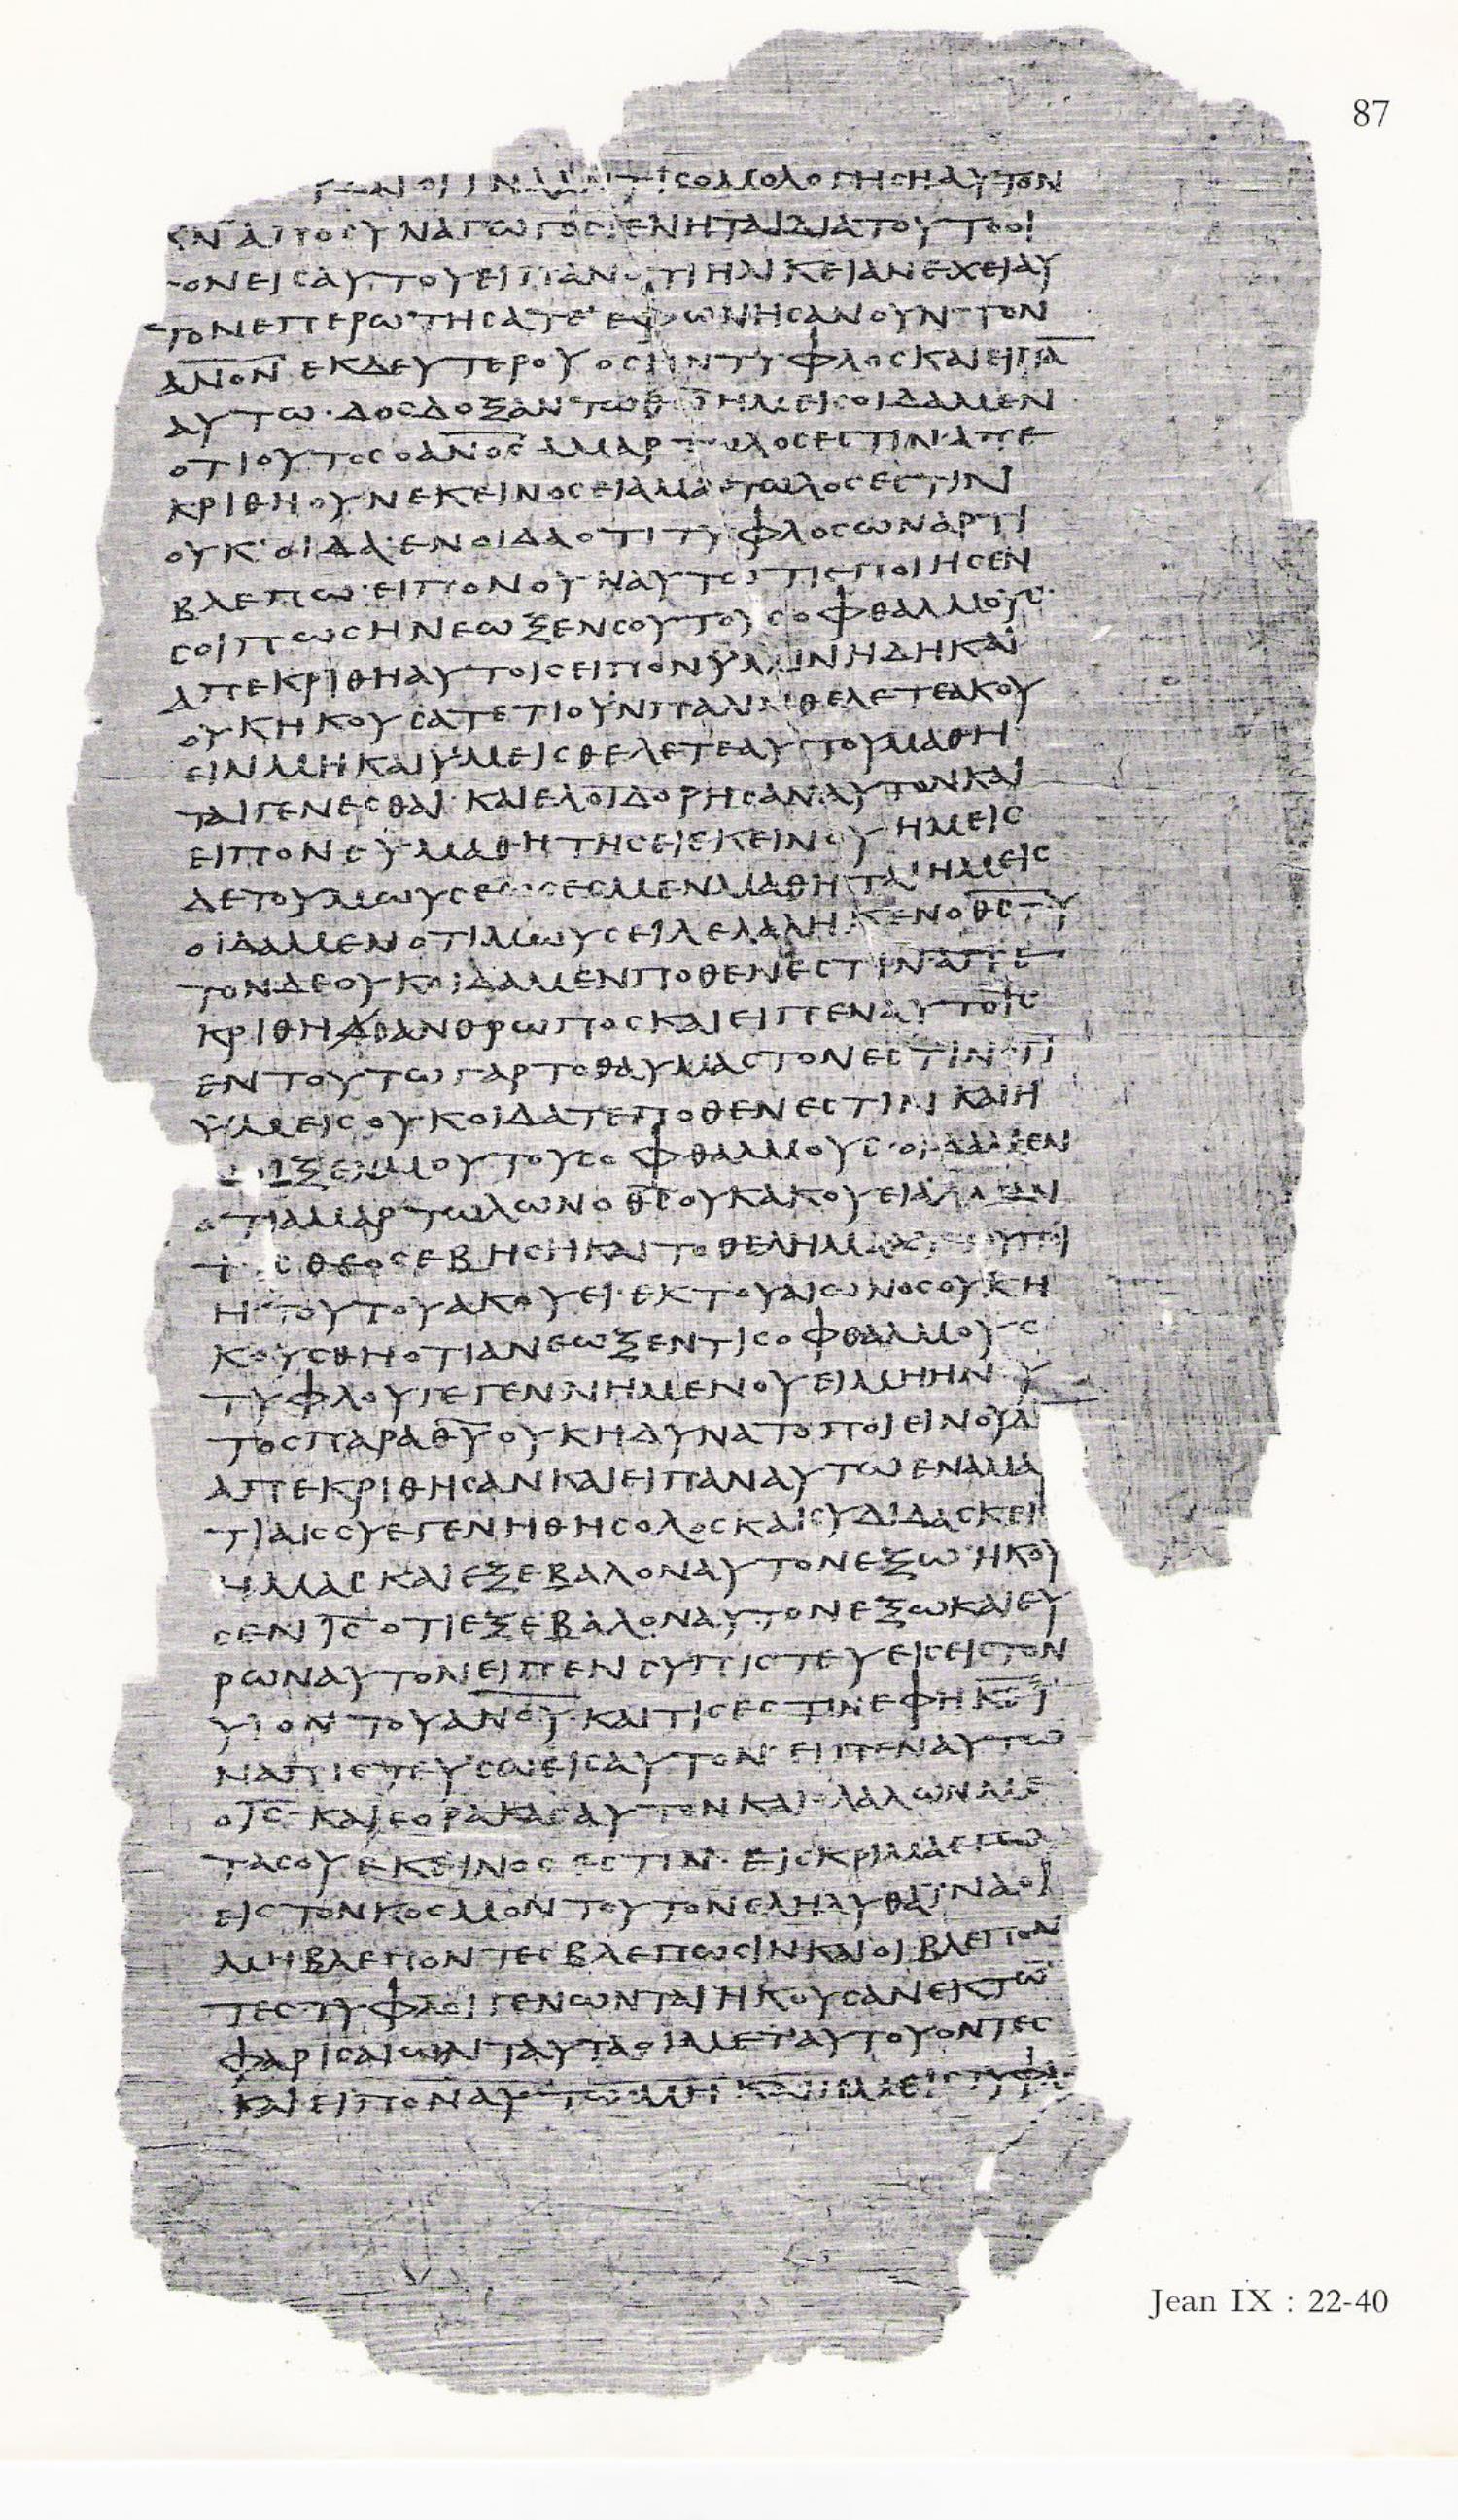 87
ΙΝΑ ΟΜΟΛΟΓΗCΗ ΑΥΤΟΝ
ΧΝ ΑΠΟCΥΝΑΓΩΓΟC ΓΕΝΗΤΑΙ ΔΙΑ ΤΟΥΤΟ ΟΙ
ΓΟΝΕΙC ΑΥΤΟΥ ΕΙΠΑΝ ΟΤΙ ΗΛΙΚΕΙΑΝ ΕΧΕΙ ΑΥ
ΤΟΝ ΕΠΕΡΩΤΗCΑΤΕ ΕΦΩΝΗCΑΝ ΟΥΝ ΤΟΝ
ΑΝΟΝ ΕΚ ΔΕΥΤΕΡΟΥ ΟC ΗΝ ΤΥΦΛΟC ΚΑΙ ΕΙΠΑ̅
ΑΥΤΩ· ΔΟC ΔΟΞΑΝ ΤΩ ΘΩ ΗΜΕΙC ΟΙΔΑΜΕΝ
ΟΤΙ ΟΥΤΟC Ο ΑΝΟC ΑΜΑΡΤΩΛΟC ΕCΤΙΝ· ΑΠΕ
ΚΡΙΘΗ ΟΥΝ ΕΚΕΙΝΟC ΕΙ ΑΜΑΡΤΩΛΟC ΕCΤΙΝ
ΟΥΚ ΟΙΔΑ· ΕΝ ΟΙΔΑ ΟΤΙ ΤΥΦΛΟC ΩΝ ΑΡΤΙ
ΒΛΕΠΩ· ΕΙΠΟΝ ΟΥΝ ΑΥΤΩ ΤΙ ΕΠΟΙΗCΕΝ
CΟΙ ΠΩC ΗΝΕΩΞΕΝ CΟΥ ΤΟΥC ΟΦΘΑΛΜΟΥC·
ΑΠΕΚΡΙΘΗ ΑΥΤΟΙC ΕΙΠΟΝ ΥΜΙΝ ΗΔΗ ΚΑΙ
ΟΥΚ ΗΚΟΥCΑΤΕ ΤΙ ΟΥΝ ΠΑΛΙΝ ΘΕΛΕΤΕ ΑΚΟΥ
ΕΙΝ ΜΗ ΚΑΙ ΥΜΕΙC ΘΕΛΕΤΕ ΑΥΤΟΥ ΜΑΘΗ
ΤΑΙ ΓΕΝΕCΘΑΙ· ΚΑΙ ΕΛΟΙΔΟΡΗCΑΝ ΑΥΤΟΝ ΚΑΙ
ΕΙΠΟΝ CΥ ΜΑΘΗΤΗC ΕΙ ΕΚΕΙΝΟΥ ΗΜΕΙC
ΔΕ ΤΟΥ ΜΩΥCΕΩC ΕCΜΕΝ ΜΑΘΗΤΑΙ ΗΜΕΙC
ΟΙΔΑΜΕΝ ΟΤΙ ΜΩΥCΕΙ ΛΕΛΑΛΗΚΕΝ Ο ΘC ΤΥ
ΤΟΝ ΔΕ ΟΥΚ ΟΙΔΑΜΕΝ ΠΟΘΕΝ ΕCΤΙΝ ΑΠΕ
ΚΡΙΘΗ Ο ΑΝΘΡΩΠΟC ΚΑΙ ΕΙΠΕΝ ΑΥΤΟΙC
ΕΝ ΤΟΥΤΩ ΓΑΡ ΤΟ ΘΑΥΜΑCΤΟΝ ΕCΤΙΝ ΟΤΙ
ΥΜΕΙC ΟΥΚ ΟΙΔΑΤΕ ΠΟΘΕΝ ΕCΤΙΝ ΚΑΙ Η
ΝΕΩΞΕΝ ΜΟΥ ΤΟΥC ΟΦΘΑΛΜΟΥC· ΟΙΔΑΜΕΝ
ΟΤΙ ΑΜΑΡΤΩΛΩΝ Ο ΘC ΟΥΚ ΑΚΟΥΕΙ ΑΛΛ ΕΑΝ
ΤΙC ΘΕΟCΕΒΗC Η ΚΑΙ ΤΟ ΘΕΛΗΜΑ ΑΥΤΟΥ ΠΟΙ
Η ΤΟΥΤΟΥ ΑΚΟΥΕΙ· ΕΚ ΤΟΥ ΑΙΩΝΟC ΟΥΚ Η
ΚΟΥCΘΗ ΟΤΙ ΑΝΕΩΞΕΝ ΤΙC ΟΦΘΑΛΜΟΥC
ΤΥΦΛΟΥ ΓΕΓΕΝΝΗΜΕΝΟΥ ΕΙ ΜΗ ΗΝ ΟΥ
ΤΟC ΠΑΡΑ ΘΥ ΟΥΚ ΗΔΥΝΑΤΟ ΠΟΙΕΙΝ ΟΥΔ
ΑΠΕΚΡΙΘΗCΑΝ ΚΑΙ ΕΙΠΑΝ ΑΥΤΩ ΕΝ ΑΜΑ
ΤΙΑΙC CΥ ΕΓΕΝΗΘΗC ΟΛΟC ΚΑΙ CΥ ΔΙΔΑCΚΕΙ
ΗΜΑC ΚΑΙ ΕΞΕΒΑΛΟΝ ΑΥΤΟΝ ΕΞΩ· ΗΚΟΥ
CΕΝ ΙC ΟΤΙ ΕΞΕΒΑΛΟΝ ΑΥΤΟΝ ΕΞΩ ΚΑΙ ΕΥ
ΡΩΝ ΑΥΤΟΝ ΕΙΠΕΝ CΥ ΠΙCΤΕΥΕΙC ΕΙC ΤΟΝ
ΥΙΟΝ ΤΟΥ ΑΝΟΥ· ΚΑΙ ΤΙC ΕCΤΙΝ ΕΦΗ ΚΕ Ι
ΝΑ ΠΙCΤΕΥCΩ ΕΙC ΑΥΤΟΝ· ΕΙΠΕΝ ΑΥΤΩ
Ο ΙC· ΚΑΙ ΕΟΡΑΚΑC ΑΥΤΟΝ ΚΑΙ Ο ΛΑΛΩΝ ΜΕ
ΤΑ CΟΥ ΕΚΕΙΝΟC ΕCΤΙΝ· ΕΙC ΚΡΙΜΑ ΕΓΩ
ΕΙC ΤΟΝ ΚΟCΜΟΝ ΤΟΥΤΟΝ ΕΛΗΛΥΘΑ ΙΝΑ ΟΙ
ΜΗ ΒΛΕΠΟΝΤΕC ΒΛΕΠΩCΙΝ ΚΑΙ ΟΙ ΒΛΕΠΟΝ
ΤΕC ΤΥΦΛΟΙ ΓΕΝΩΝΤΑΙ ΗΚΟΥCΑΝ ΕΚ ΤΩ̅
ΦΑΡΙCΑΙΩΝ ΤΑΥΤΑ ΟΙ ΜΕΤ ΑΥΤΟΥ ΟΝΤΕC
ΚΑΙ ΕΙΠΟΝ ΑΥΤΩ ΜΗ ΚΑΙ ΗΜΕΙC ΤΥΦΛΟΙ
Jean IX : 22-40